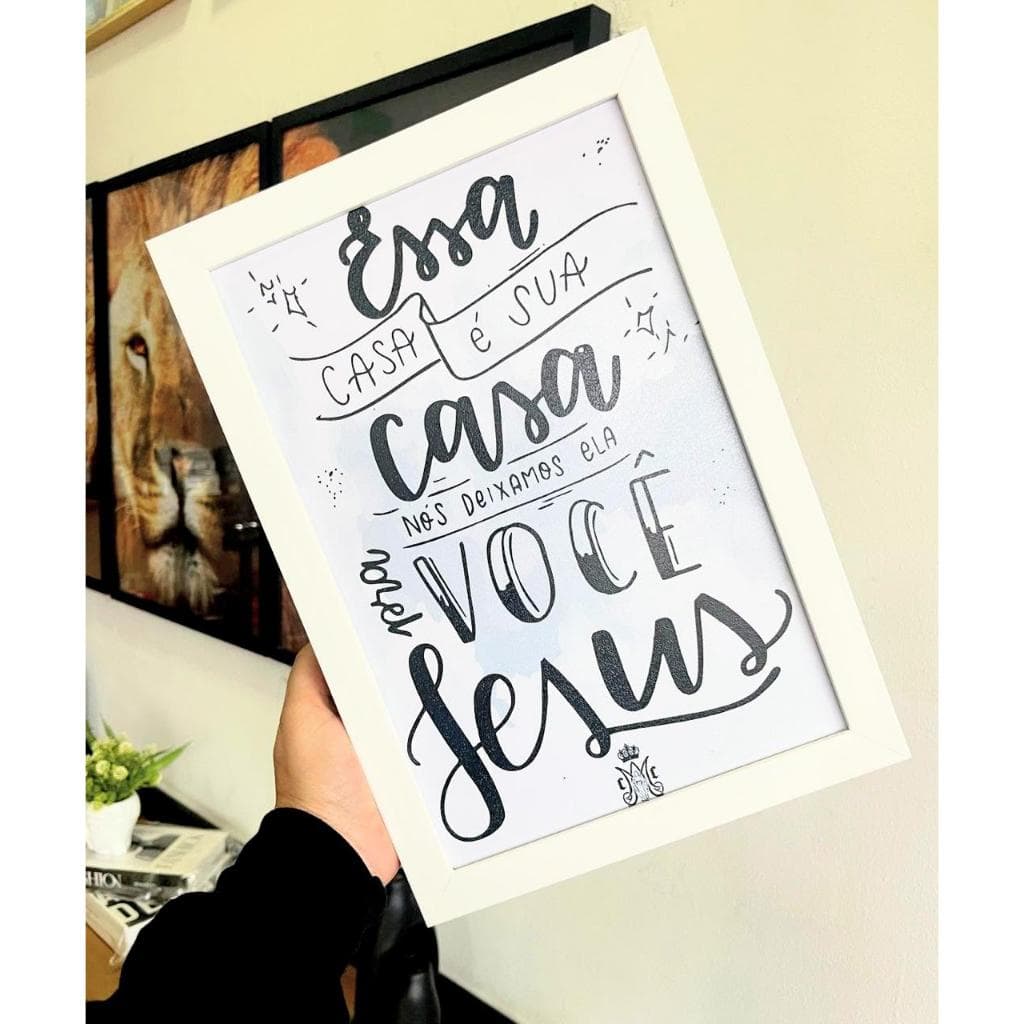 Essa
CASA é SUA
casa
NÓS DEIXAMOS ELA
PRA
VOCÊ
Jesus
C C